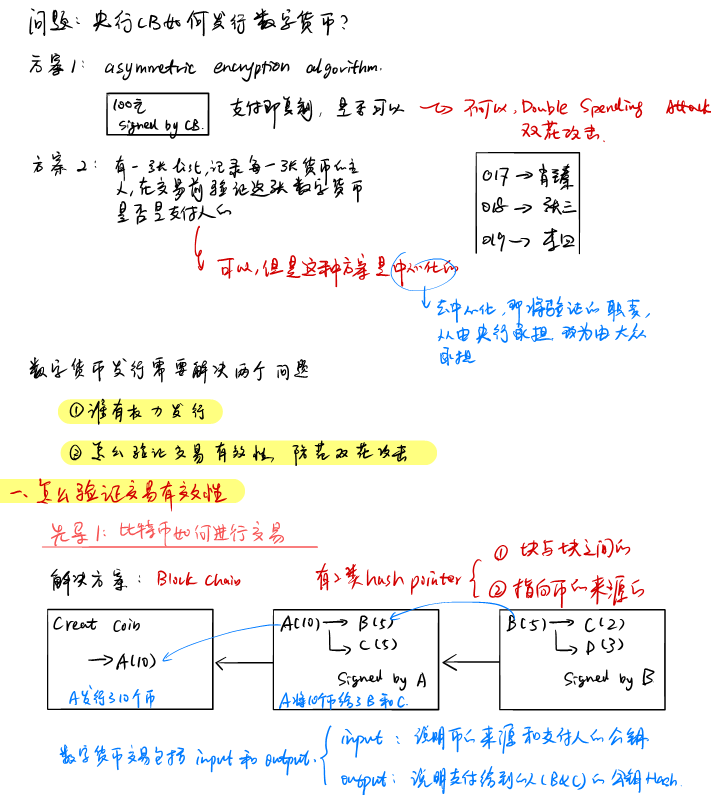 问题：央行CB如何发行数字货币？
方案1：asymmetric encryption algorithm.
100元
signed by CB.
支付即复制，是否可以 → 不可以，Double Spending Attack
双花攻击.
方案2：有一张list，记录每一张货币的主
人，在交易前验证这张数字货币
是否是支付人的
017 → 肖臻
018 → 张三
019 → 李四
可以，但是这种方案是中心化的
去中心化，即将验证的职责，
从由央行承担，改为由大众
承担
数字货币发行需要解决两个问题
①谁有权力发行
②怎么验证交易有效性，防范双花攻击
一、怎么验证交易有效性
先导1：比特币如何进行交易
解决方案：Block chain
有2类hash pointer
① 块与块之间的
② 指向币的来源的
Creat coin
→A(10)
A发行了10个币
A(10) → B(5)
→ C(5)
Signed by A
A将10个币给了B和C.
B(5) → C(2)
→ D(3)
Signed by B
数字货币交易包括 input 和 output.
input：说明币的来源和支付人的公钥
output：说明支付给到的人(B&C)的公钥Hash.